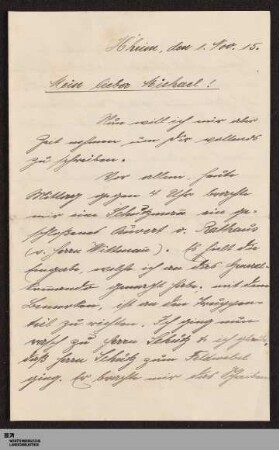 H'heim, den 1. Nov. 15.
Mein lieber Michael!
Nun will ich mir aber
Zeit nehmen, um Dir vollends
zu schreiben.
Vor allem, heute
Mittag gegen 4 Uhr brachte
mir ein Schutzmann ein ge-
schlossenes Kuvert v. Rathaus
(v. Herrn Wittmann). Es soll die
Eingabe, welche ich an das General-
kommando gemacht habe, mit dem
Bemerken, ist an den Truppen-
teil zu richten. Ich ging nun
rasch zu Herrn Schütz &
daß Herr Schütz zum Feldwebel
ging. Er brachte mir das
WÜRTTEMBERGISCHE
LANDESBIBLIOTHEK